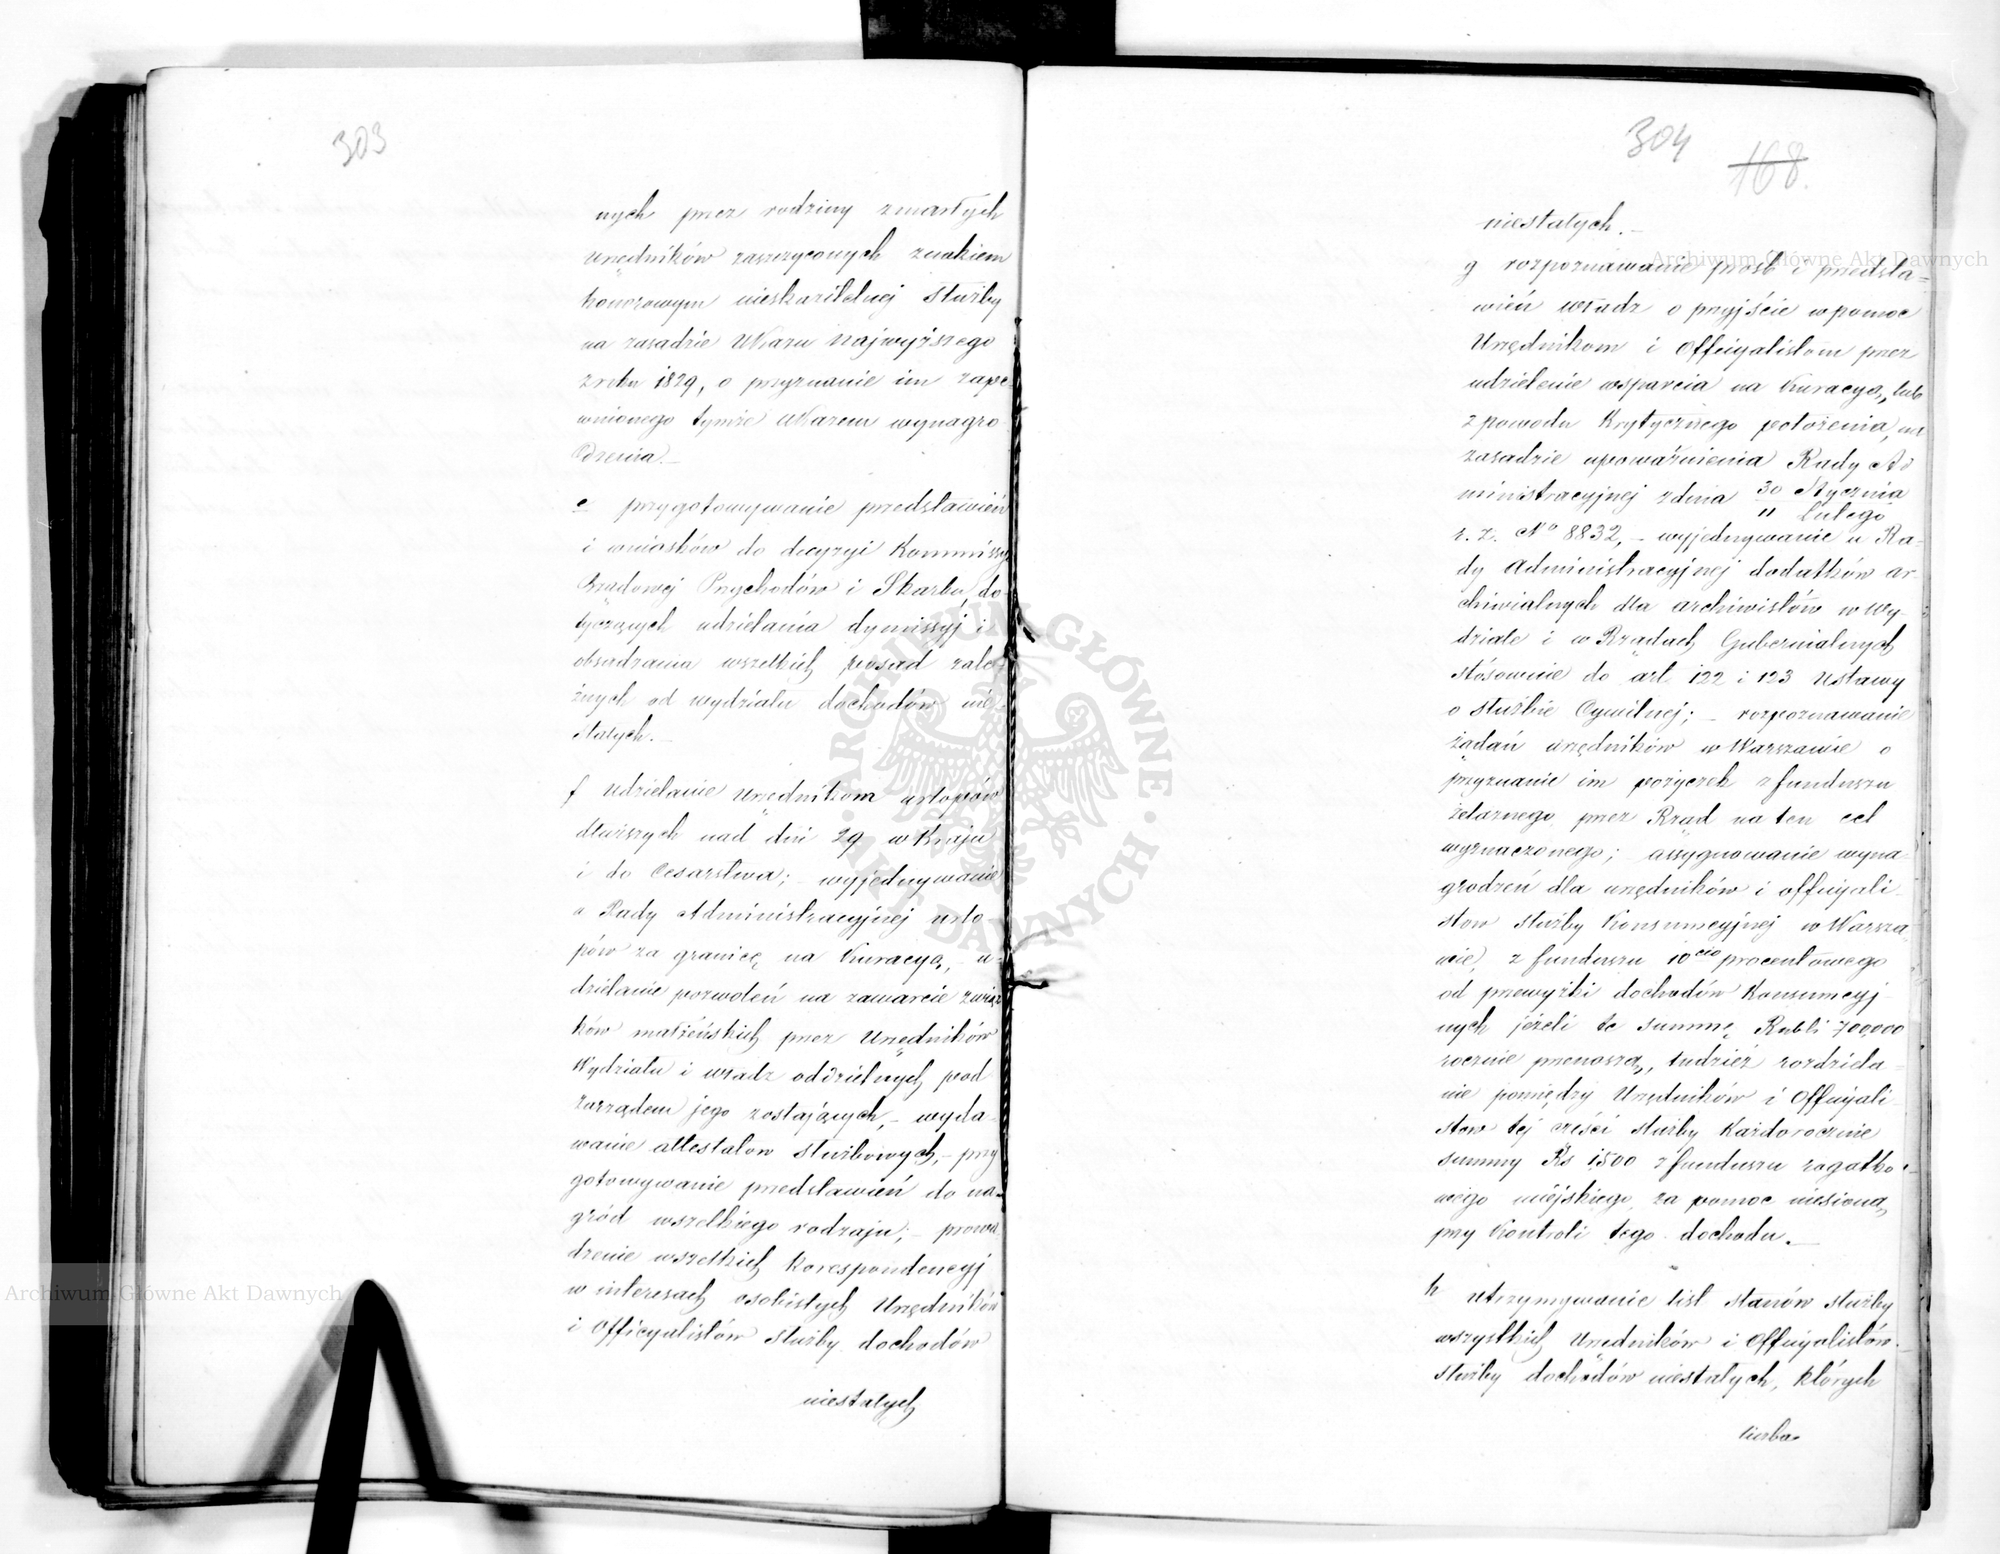 303
nych przez rodziny zmarłych
Urzędników zaszczyconych znakiem
honorowym nieskazitelnej służby
na zasadzie Ukazu Najwyższego
z roku 1829, o przyznanie im zape-
wnionego tymże Ukazem wynagro-
dzenia.—
e przygotowywanie przedstawień
i wniosków do decyzyi Kommissyi
Rządowej Przychodów i Skarbu, do-
tyczących udzielania dymissyj i
obsadzania wszelkich posad zale-
żnych od wydziału dochodów nie-
stałych.—
f udzielanie Urzędnikom urlopów
dłuższych nad dni 29 w Kraju
i do Cesarstwa; — wyjednywanie
u Rady Administracyjnej urlo-
pów za granicę na Kuracyą, — u-
dzielanie pozwoleń na zawarcie związ-
ków małżeńskich przez Urzędników
Wydziału i władz oddzielnych pod
zarządem jego zostających, — wyda-
wanie attestatow służbowych, — przy
gotowywanie przedstawień do na-
gród wszelkiego rodzaju; — prowa-
dzenie wszelkich Korespondencyj
w interesach osobistych Urzędników
i Officyalistów służby dochodów
niestałych
304
168.
niestałych.—
g rozpoznawanie prośb i przedsta-
wień władz o przyjście w pomoc
Urzędnikom i Officyalistom przez
udzielenie wsparcia na Kuracyą, lub
z powodu Krytycznego położenia, na
zasadzie upoważnienia Rady Ad
ministracyjnej z dnia 30 Stycznia
11 Lutego
r. z. No 8832, — wyjednywanie u Ra-
dy Administracyjnej dodatków ar-
chiwialnych dla archiwistów w Wy-
dziale i w Rządach Gubernialnych
stósownie do art. 122 i 123 Ustawy
o służbie Cywilnej; — rozpoznawanie
żądań urzędników w Warszawie o
przyznanie im pożyczek z funduszu
żelaznego przez Rząd na ten cel
wyznaczonego; — assygnowanie wyna-
grodzeń dla urzędników i officyali-
stow służby Konsumcyjnej w Warsza-
wie, z funduszu 10cio procentowego
od przewyżki dochodów Konsumcyj-
nych jeżeli te summę Rubli 700,000
rocznie przenoszą, tudzież rozdziela-
nie pomiędzy Urzędników i Officyali-
stow tej części służby Każdorocznie
summy Rs 1,500 z funduszu rogatko-
wego miejskiego, za pomoc niesioną,
przy Kontroli tego dochodu.—
h utrzymywanie list stanów służby
wszystkich Urzędników i Officyalistów
służby dochodów niestałych, których
liczba
Archiwum Główne Akt Dawnych
Archiwum Główne Akt Dawnych
ARCHIWUM GŁÓWNE
AKT DAWNYCH